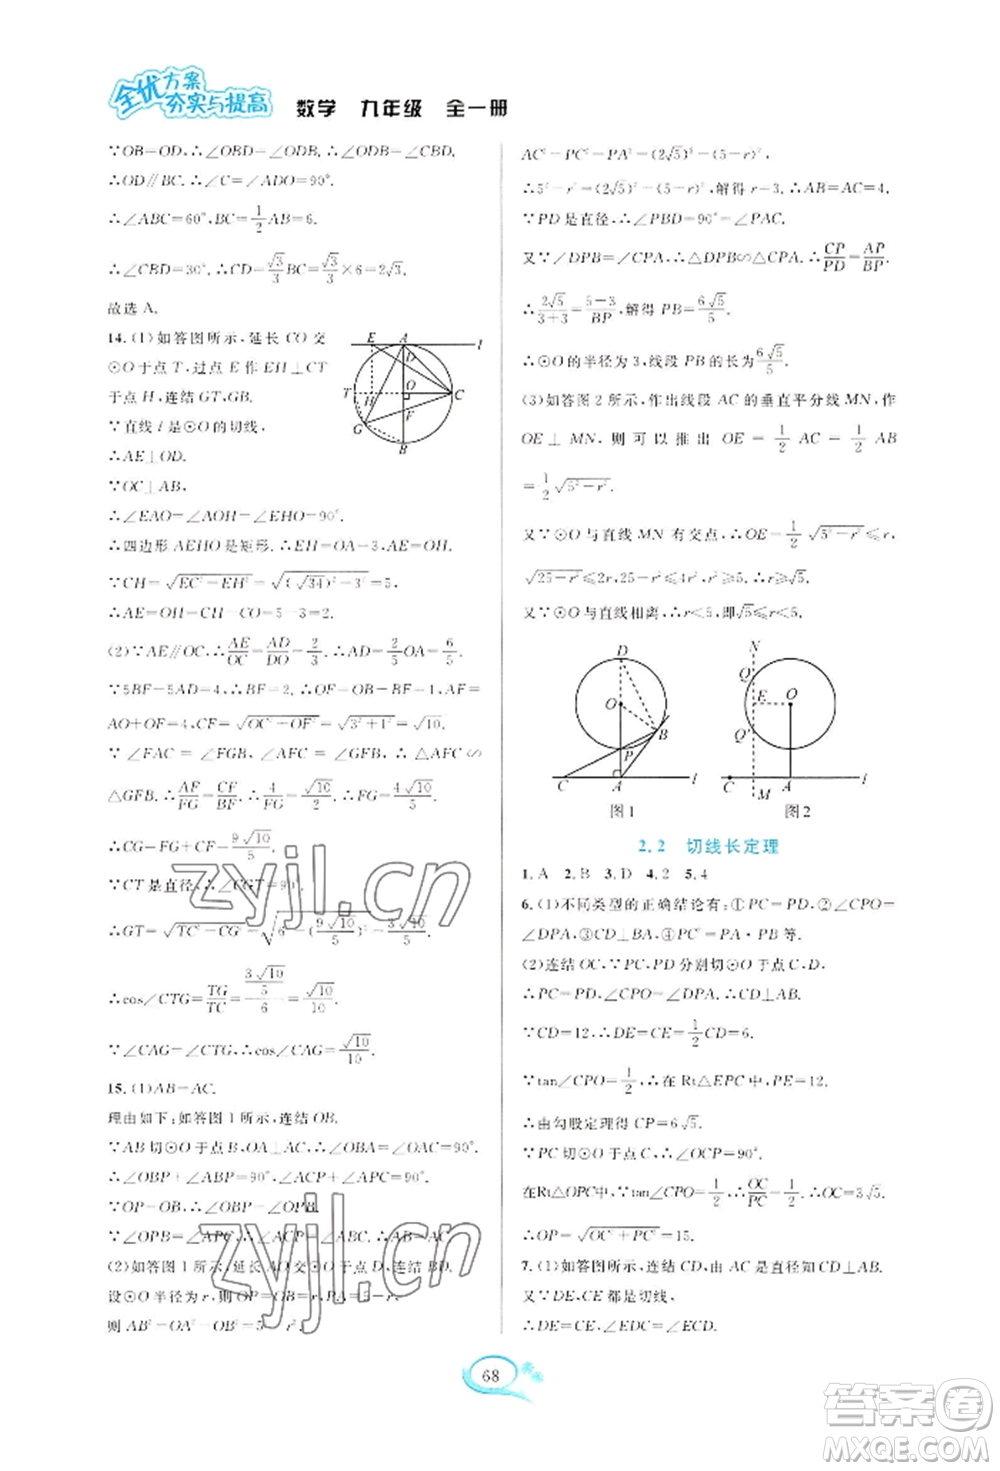 全优方案
夯实与提高
数学 九年级 全一册
∵OB=OD,∴∠OBD=∠ODB.∴∠ODB=∠CBD.
∴OD∥BC.∴∠C=∠ADO=90°.
∴∠ABC=60°,BC=1/2AB=6.
∴∠CBD=30°.∴CD=√3/3BC=√3/3×6=2√3.
故选 A.
14.(1)如答图所示,延长 CO 交
⊙O于点 T,过点 E 作 EH⊥CT
于点 H,连结 GT,GB.
∵直线 l 是⊙O 的切线,
∴AE⊥OD.
∵OC⊥AB,
∴∠EAO=∠AOH=∠EHO=90°.
∴四边形 AEHO 是矩形.∴EH=OA=3.
∵CH=√(EC²-EH²)=√((√34)²-3²)=5,
∴AE=OH=CH-CO=5-3=2.
(2)∵AE∥OC,∴AE/OC=AD/DO=2/3.∴AD=2/5OA=6/5.
∵5BF=5AD+4,∴BF=2.∴OF=OB-BF=1.
AO+OF=4,CF=√(OC²+OF²)=√(3²+1²)=√10.
∵∠FAC=∠FGB,∠AFC=∠GFB,∴△AFC∽
△GFB.∴AF/FG=CF/BF.∴4/FG=√10/2.∴FG=4√10/5.
∴CG=FG+CF=9√10/5.
∵CT是直径,∴∠CGT=90°.
∴GT=√(TC²-CG²)=√(6²-(9√10/5)²)=3√10/5.
∴cos∠CTG=TG/TC=(3√10/5)/6=√10/10.
∵∠CAG=∠CTG,∴cos∠CAG=√10/10.
15.(1)AB=AC.
理由如下:如答图 1 所示,连结 OB.
∵AB切⊙O于点 B,OA⊥AC,∴∠OBA=∠OAC=90°.
∴∠OBP+∠ABP=90°,∠ACP+∠APC=90°.
∵OP=OB,∴∠OBP=∠OPB.
∵∠OPB=∠APC,∴∠ACP=∠ABP.∴AB=AC.
(2)如答图 1 所示,延长 AO 交⊙O 于点 D,连结 BD.
设⊙O 半径为 r,则 OP=OB=r,PA=5-r.
则 AB²=OA²-OB²=5²-r²,
AC²=PC²-PA²=(2√5)²-(5-r)²,
∴5²-r²=(2√5)²-(5-r)²,解得 r=3.∴AB=AC=4.
∵PD是直径,∴∠PBD=90°=∠PAC.
又∵∠DPB=∠CPA,∴△DPB∽△CPA.∴CP/PD=AP/BP.
∴2√5/(3+3)=(5-3)/BP.解得 PB=6√5/5.
∴⊙O 的半径为 3,线段 PB 的长为6√5/5.
(3)如答图 2 所示,作出线段 AC 的垂直平分线 MN,作
OE⊥MN,则可以推出 OE=1/2AC=1/2AB=
1/2√(5²-r²).
又∵⊙O 与直线 MN 有交点,∴OE=1/2√(5²-r²)≤r.
√(25-r²)≤2r,25-r²≤4r²,r²≥5,∴r≥√5.
又∵⊙O与直线相离,∴r<5,即√5≤r<5.
E A l D T H O C F G B
D O B P C A l
图 1
N Q E O Q' C A l M
图 2
2.2 切线长定理
1.A 2.B 3.D 4.2 5.4
6.(1)不同类型的正确结论有:①PC=PD,②∠CPO=
∠DPA,③CD⊥BA,④PC²=PA·PB 等.
(2)连结 OC,∵PC,PD 分别切⊙O于点 C,D,
∴PC=PD,∠CPO=∠DPA.∴CD⊥AB.
∵CD=12,∴DE=CE=1/2CD=6.
∵tan∠CPO=1/2,∴在 Rt△EPC 中,PE=12.
∴由勾股定理得 CP=6√5.
∵PC 切⊙O于点 C,∴∠OCP=90°.
在Rt△OPC中,∵tan∠CPO=1/2,∴OC/PC=1/2.∴OC=3√5.
∴OP=√(OC²+PC²)=15.
7.(1)如答图所示,连结 CD,由 AC 是直径知 CD⊥AB.
又∵DE,CE 都是切线,
∴DE=CE,∠EDC=∠ECD.
68
zyjl.cn
zyjl.cn
答案圈
MXQE.COM